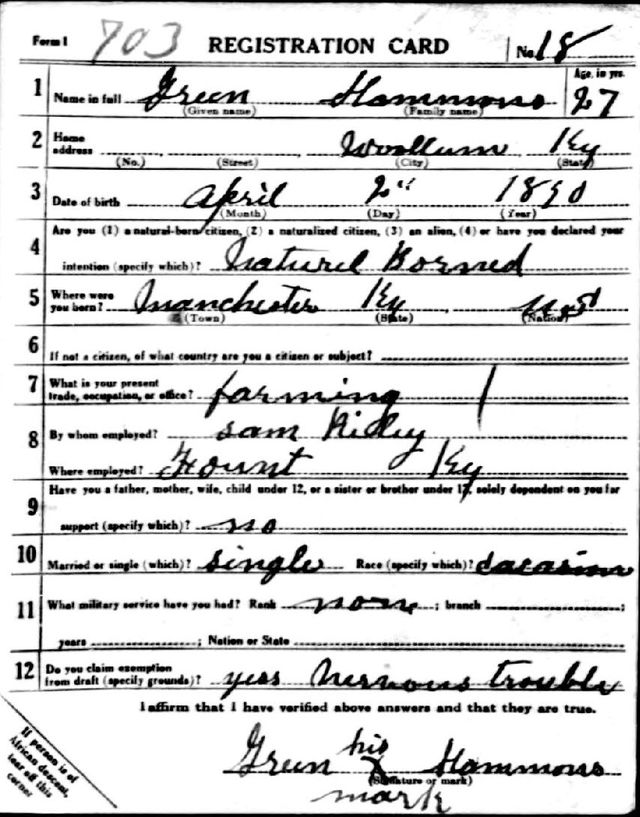 Form 1 703 REGISTRATION CARD No. 18
1 Name in full Green Hammons Age, in yrs. 27
(Given name) (Family name)
2 Home address Woollum Ky
(No.) (Street) (City) (State)
3 Date of birth April 2" 1890
(Month) (Day) (Year)
Are you (1) a natural-born citizen, (2) a naturalized citizen, (3) an alien, (4) or have you declared your
4 intention (specify which)? Naturel Borned
5 Where were you born? Manchester Ky
(Town) (State) (Nation)
6 If not a citizen, of what country are you a citizen or subject?
7 What is your present trade, occupation, or office? farming
8 By whom employed? Sam
Where employed? Fount Ky
9 Have you a father, mother, wife, child under 12, or a sister or brother under 12, solely dependent on you for
support (specify which)? no
10 Married or single (which)? single Race (specify which)?
11 What military service have you had? Rank none ; branch ;
years ; Nation or State
12 Do you claim exemption from draft (specify grounds)? yess nervous trouble
I affirm that I have verified above answers and that they are true.
Green his X Hammons
(Signature or mark)
mark
If person is of
African descent,
tear off this
corner